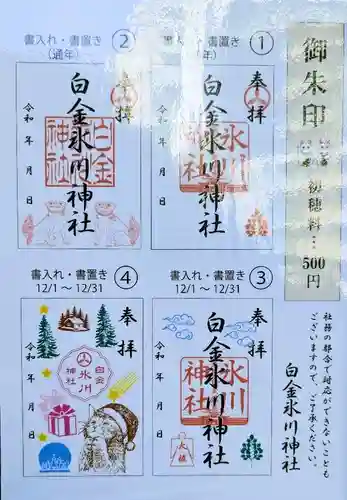 御朱印
初穂料…
500円
書入れ・書置き
①
奉拝
白金氷川神社
氷川神社
令和 年 月 日
書入れ・書置き
②
(通年)
奉拝
白金氷川神社
白金神社
令和 年 月 日
書入れ・書置き
③
12/1 ～ 12/31
奉拝
白金氷川神社
氷川神社
令和 年 月 日
書入れ・書置き
④
12/1 ～ 12/31
奉拝
白金
氷川
神社
令和 年 月 日
社務の都合で対応ができないことも
ございますので、ご了承ください。
白金氷川神社